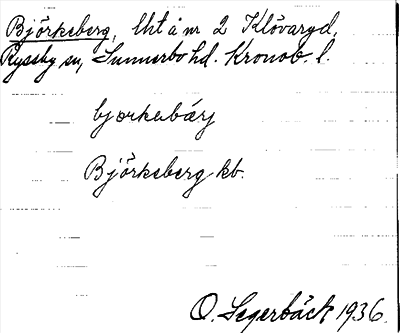 Björkeberg, lht å nr 2 Klövaryd,
Ryssby sn, Sunnerbo hd. Kronob. l.
bjorkabárj
Björkeberg kb.
O. Segerbäck 1936.